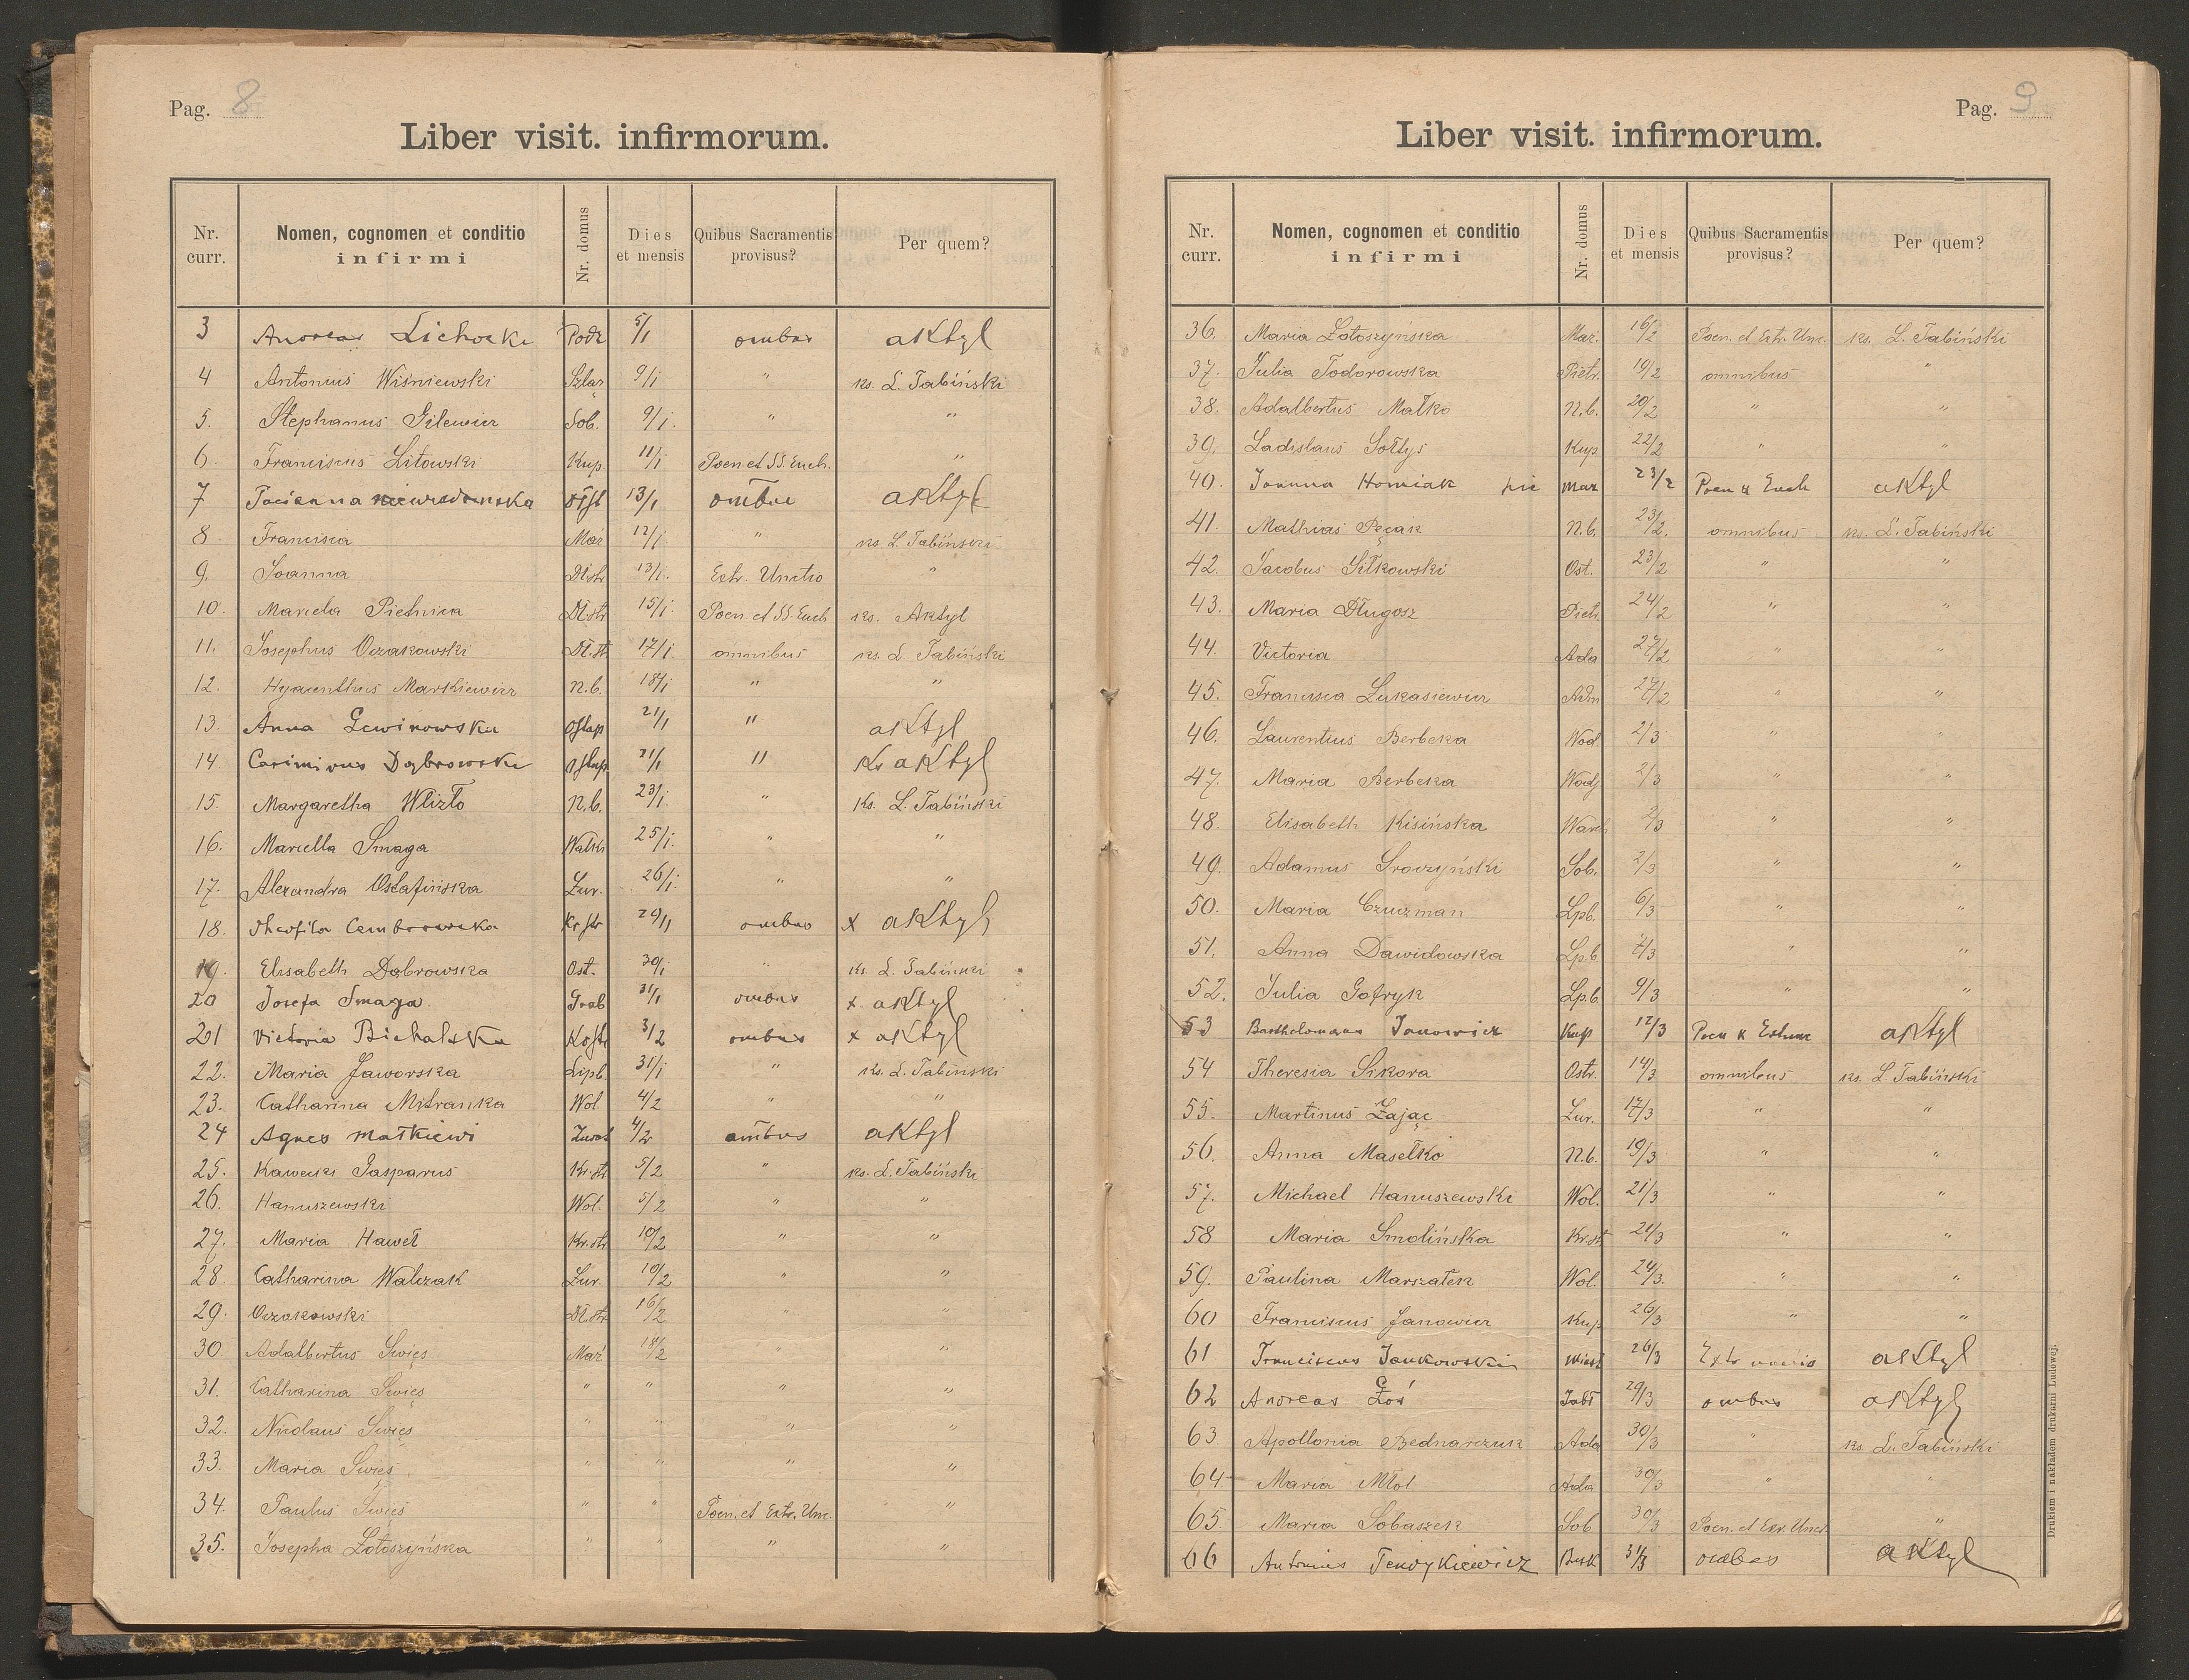 Pag. 8
Liber visit. infirmorum.
Nr. curr. | Nomen, cognomen et conditio infirmi | Nr. domus | Dies et mensis | Quibus Sacramentis provisus? | Per quem?
3 Andreas Lichocki Podz 5/1 ombus aKtyl
4 Antonius Wiśniewski Szlar 9/i " ks. L. Tabiński
5. Stephanus Gilewicz Sob. 9/i. " "
6. Franciscus Litowski Kup. 11/i Poen et SS. Euch. "
7 13/1 aKtyl
8 Francisca Mar 12/i " ks L. Tabiński
9. Joanna Dl.str 13/i. Extr. Unctio "
10. Marcela Pietnica Dl.str 15/i. Poen. et SS. Euch ks. Aktyl
11. Josephus Oczakowski Dl.st. 17/i. omnibus ks. L. Tabiński
12. Hyacinthus Markiewicz N.b. 18/i " "
13. Anna Lewinowska Ostap 21/1 " aKtyl
14. Casimirus Dąbrowski 21/1 " Ks aKtyl
15. Margaretha Wlizło N.b. 23/i. " Ks. L. Tabiński
16. Marcella Smaga Walki 25/i. " "
17. Alexandra Ostafińska Żur. 26/i. " "
18. Theofila Kr str 29/1 ombus x aKtyl
19. Elisabeth Dąbrowska Ost. 30/i " ks. L. Tabiński
20 Josefa Smaga Grab 31/1 ombus x. aKtyl
201 Victoria Bichalska 3/2 ombus x aKtyl
22. Maria Jaworska Lipb. 31/i " ks. L. Tabiński
23. Catharina Mitranka Wol. 4/2 " "
24 Agnes Matkiewi Żurat 4/2 ombus aKtyl
25. Kawecki Gasparus Kr.st 5/2 " ks. L. Tabiński
26. Hanuszewski Wol. 5/2 " "
27. Maria Haweł Kr.str 10/2 " "
28 Catharina Walczak Żur. 10/2 " "
29. Oczakowski Dl.str 16/2 " "
30 Adalbertus Święs Mar 18/2 " "
31. Catharina Święs " " " "
32. Nicolaus Święs " " " "
33. Maria Święs " " " "
34. Paulus Święs " " Poen. et Extr. Unc. "
35. Josepha Łotoszyńska " " " "
Pag. 9
Liber visit. infirmorum.
Nr. curr. | Nomen, cognomen et conditio infirmi | Nr. domus | Dies et mensis | Quibus Sacramentis provisus? | Per quem?
36. Maria Łotoszyńska Mar. 16/2 Poen. et Extr. Unc. ks. L. Tabiński
37. Julia Todorowska Pietr. 19/2 omnibus "
38. Adalbertus Małko N.b. 20/2 " "
39. Ladislaus Sołtys Kup 22/2 " "
40. Joanna Homiak Mar 23/2 Poen & Euch aKtyl
41. Mathias Pęcak N.b. 23/2. omnibus ks. L. Tabiński
42. Jacobus Sitkowski Ost. 23/2 " "
43. Maria Długosz Pietr. 24/2 " "
44. Victoria Ada 27/2 " "
45. Francisca Łukasiewicz Adm 27/2 " "
46. Laurentius Berbeka Wod. 2/3 " "
47. Maria Berbeka Wodj 2/3 " "
48. Elisabeth Kisińska 2/3 " "
49. Adamus Sroczyński Sob. 2/3 " "
50. Maria Czuczman Lpb. 6/3 " "
51. Anna Dawidowska Lp.b. 7/3 " "
52. Julia Gofryk Lp.b 9/3 " "
53 Bartholomaeus Janowicz Kup 12/3 aKtyl
54 Theresia Sikora Ostr. 14/3 omnibus ks. L. Tabiński
55. Martinus Zając Żur. 17/3 " "
56. Anna Masełko N.b. 19/3 " "
57. Michael Hanuszewski Wol. 21/3 " "
58 Maria Smolińska Kr.st 21/3 " "
59. Paulina Marszałek Wol. 24/3. " "
60 Franciscus Janowicz Kup 26/3 " "
61 Franciscus Jankowski 26/3 Extr unctio aKtyl
62 Andreas Łoś Jabł 29/3 ombus aKtyl
63 Apollonia Bednarczuk Ada 30/3 " ks. L. Tabiński
64 Maria Młot Ada 30/3 " "
65. Maria Sobaszek Sob 30/3 Poen. et Exr. Unct. "
66 Antonius Tendykiewicz Busk 31/3 ombus aKtyl
Drukiem i nakładem drukarni Ludowej.